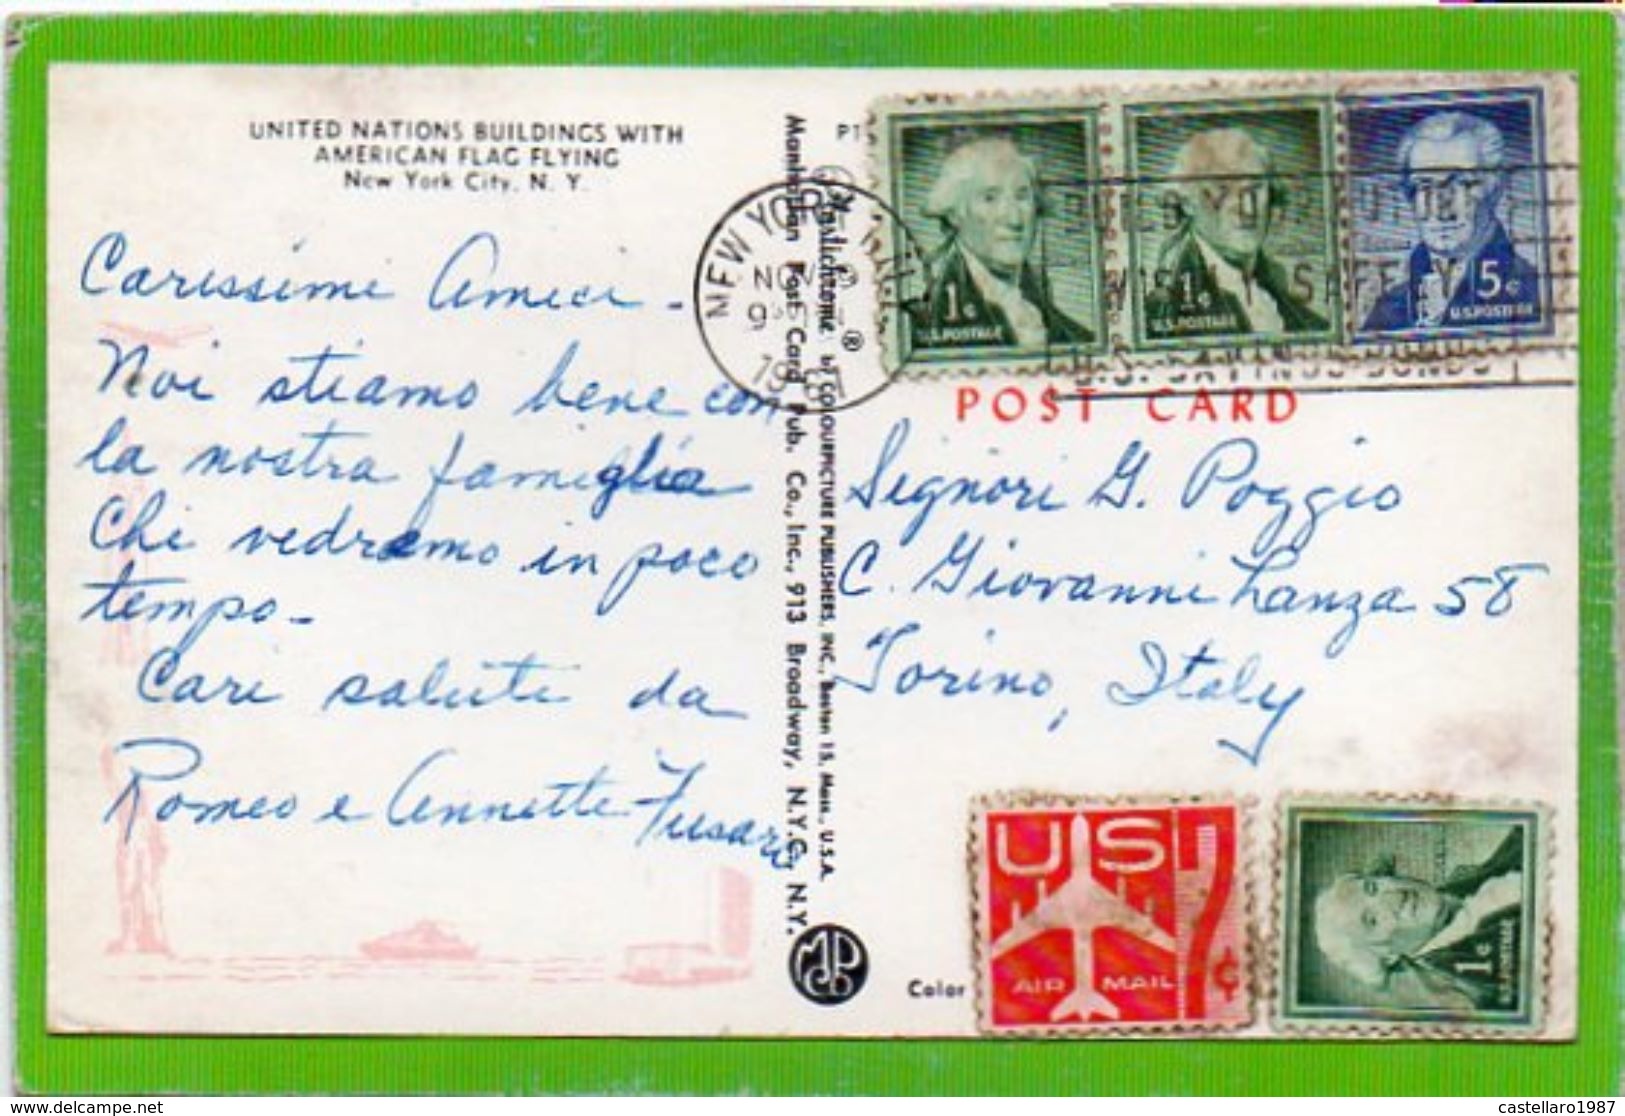 UNITED NATIONS BUILDINGS WITH
AMERICAN FLAG FLYING
New York City, N. Y.
Carissimi Amici -
Noi stiamo bene con
la nostra famiglia
Chi vedremo in poco
tempo -
Cari saluti da
Romeo e Annette Fusaro
Manhattan Post Card Pub. Co., Inc., 913 Broadway, N.Y.C., N.Y.
Plastichrome ® by COLOURPICTURE PUBLISHERS, INC., Boston 15, Mass., U.S.A.
P1
NEW YORK
NOV
1¢
U.S. POSTAGE
1¢
U.S. POSTAGE
5¢
U.S. POSTAGE
SPEED YOUR
SAFELY
U.S. SAVINGS BONDS
POST CARD
Signori G. Poggio
C. Giovanni Lanza 58
Torino, Italy
US 7¢
AIR MAIL
1¢
U.S. POSTAGE
Color
delcampe.net
castellaro1987